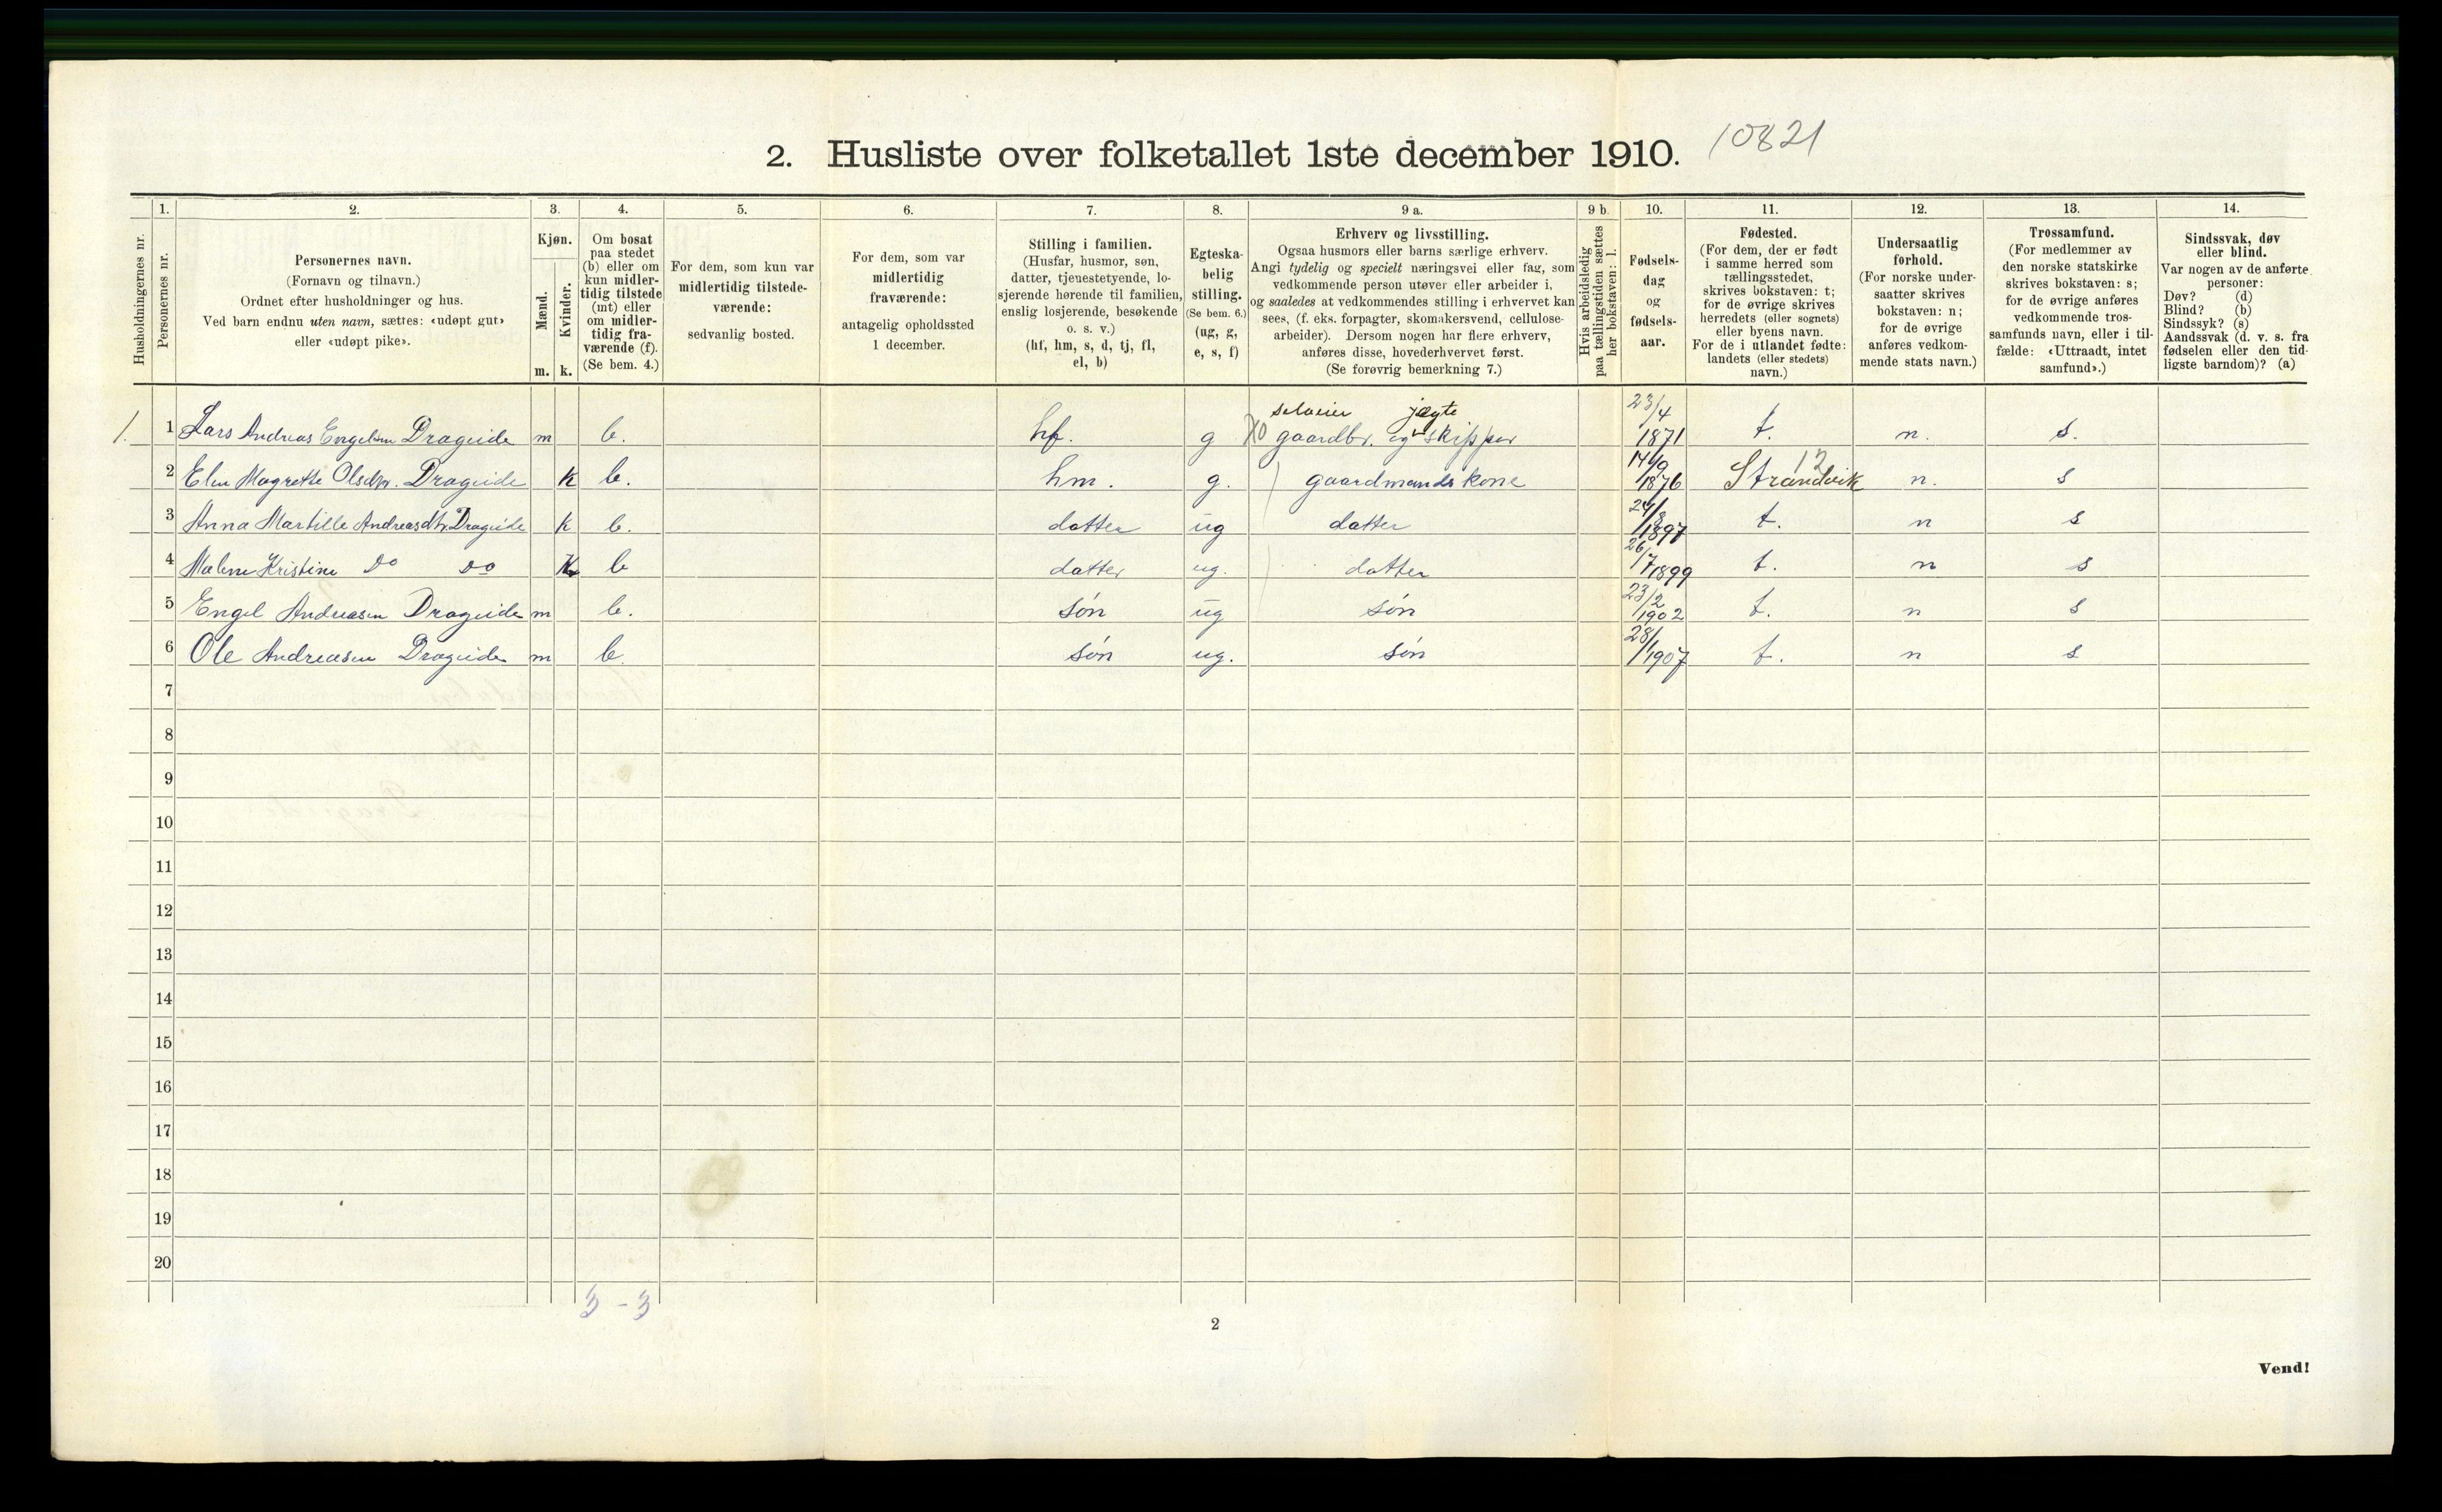 2. Husliste over folketallet 1ste december 1910. 10821
1. 2. 3. 4. 5. 6. 7. 8. 9 a. 9 b. 10. 11. 12. 13. 14.
Husholdningernes nr.
Personernes nr.
Personernes navn.
(Fornavn og tilnavn.)
Ordnet efter husholdninger og hus.
Ved barn endnu uten navn, sættes: «udøpt gut»
eller «udøpt pike».
Kjøn.
Mænd.
Kvinder.
m. k.
Om bosat
paa stedet
(b) eller om
kun midler-
tidig tilstede
(mt) eller
om midler-
tidig fra-
værende (f).
(Se bem. 4.)
For dem, som kun var
midlertidig tilstede-
værende:
sedvanlig bosted.
For dem, som var
midlertidig
fraværende:
antagelig opholdssted
1 december.
Stilling i familien.
(Husfar, husmor, søn,
datter, tjenestetyende, lo-
sjerende hørende til familien,
enslig losjerende, besøkende
o. s. v.)
(hf, hm, s, d, tj, fl,
el, b)
Egteska-
belig
stilling.
(Se bem. 6.)
(ug, g,
e, s, f)
Erhverv og livsstilling.
Ogsaa husmors eller barns særlige erhverv.
Angi tydelig og specielt næringsvei eller fag, som
vedkommende person utøver eller arbeider i,
og saaledes at vedkommendes stilling i erhvervet kan
sees, (f. eks. forpagter, skomakersvend, cellulose-
arbeider). Dersom nogen har flere erhverv,
anføres disse, hovederhvervet først.
(Se forøvrig bemerkning 7.)
Hvis arbeidsledig
paa tællingstiden sættes
her bokstaven: l.
Fødsels-
dag
og
fødsels-
aar.
Fødested.
(For dem, der er født
i samme herred som
tællingsstedet,
skrives bokstaven: t;
for de øvrige skrives
herredets (eller sognets)
eller byens navn.
For de i utlandet fødte:
landets (eller stedets)
navn.)
Undersaatlig
forhold.
(For norske under-
saatter skrives
bokstaven: n;
for de øvrige
anføres vedkom-
mende stats navn.)
Trossamfund.
(For medlemmer av
den norske statskirke
skrives bokstaven: s;
for de øvrige anføres
vedkommende tros-
samfunds navn, eller i til-
fælde: «Uttraadt, intet
samfund».)
Sindssvak, døv
eller blind.
Var nogen av de anførte
personer:
Døv? (d)
Blind? (b)
Sindssyk? (s)
Aandssvak (d. v. s. fra
fødselen eller den tid-
ligste barndom)? (a)
selveier jægte 23/4
1. 1 Lars Andreas Engelsen Drageide m b. hf. g X0 gaardbr. og skipper 1871 t. n. s.
14/9 12
2 Elen Magrethe Olsdtr. Drageide k b. hm. g. gaardmandskone 1876 Strandvik n. s
3 Anna Martille Andreasdtr. Drageide k b. datter ug datter 24/8 1897 t. n s
4 Malene Kristine Do Do k b datter ug. datter 26/7 1899 t. n s
5 Engel Andreasen Drageide m b. søn ug søn 23/2 1902 t. n s
6 Ole Andreasen Drageide m b. søn ug. søn 28/1 1907 t. n s
7
8
9
10
11
12
13
14
15
16
17
18
19
20
3 - 3
2
Vend!